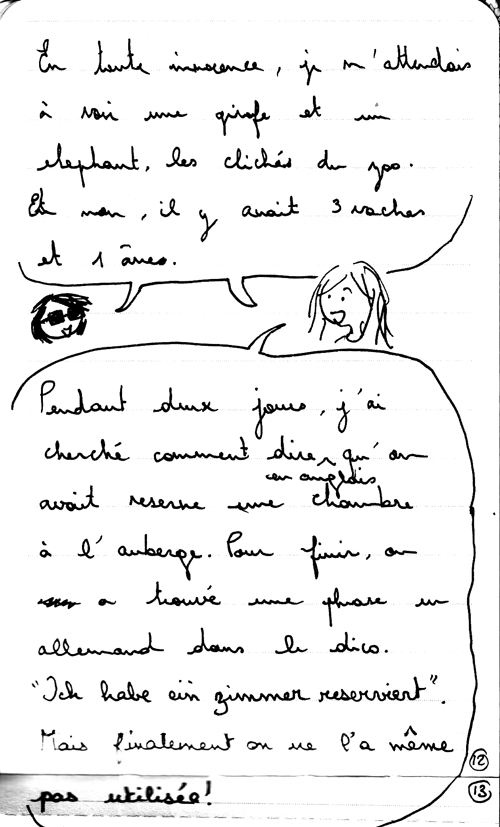 En toute innocence, je m'attendais
à voir une girafe et un
elephant, les clichés du zoo.
Et non, il y avait 3 vaches
et 1 ânes.
Pendant deux jours, j'ai
cherché comment dire qu'on
en anglais
avait reserve une chambre
à l'auberge. Pour finir, on
a trouvé une phrase en
allemand dans le dico.
"Ich habe ein zimmer reserviert".
Mais finalement on ne l'a même
12
13
pas utilisée!